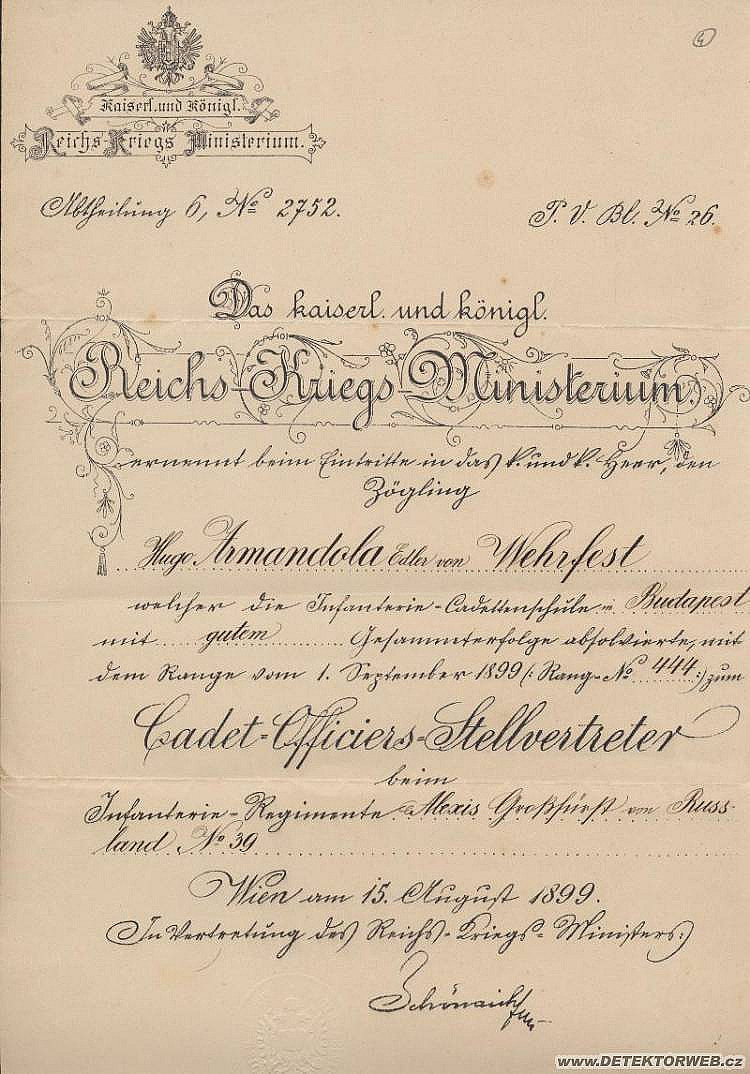 4
Kaiserl. und Königl.
Reichs-Kriegs Ministerium.
Abtheilung 6, No 2752.
P. V. Bl. No 26.
Das kaiserl. und königl.
Reichs-Kriegs-Ministerium
ernennt beim Eintritte in das k. und k. Heer, den
Zögling
Hugo Armandola Edler von Wehrfest
welcher die Infanterie-Cadettenschule in Budapest
mit gutem Gesammterfolge absolvierte, mit
dem Range vom 1. September 1899 (: Rang-No 444 :) zum
Cadet-Officiers-Stellvertreter
beim
Infanterie-Regimente Alexis Großfürst von Russ-
land No 39
Wien am 15. August 1899.
In Vertretung des Reichs-Kriegs-Ministers:
Schönaich
www.DETEKTORWEB.cz